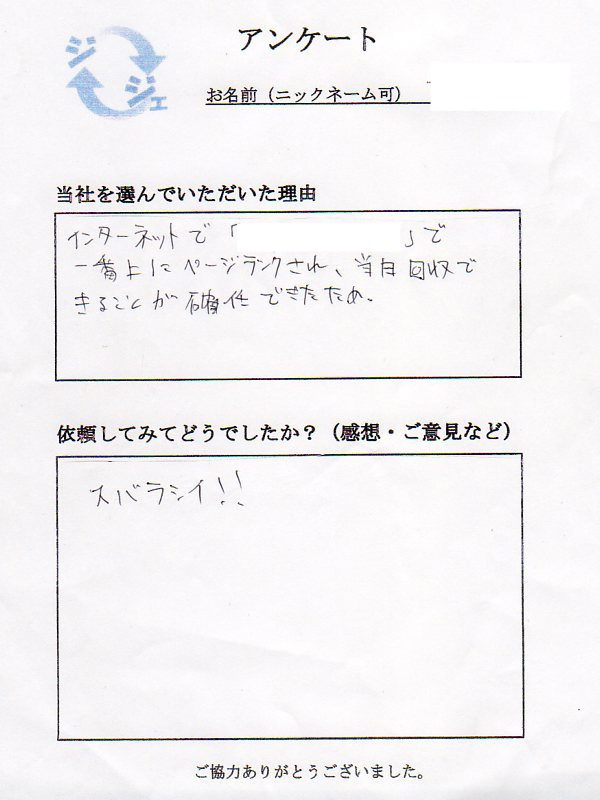 ジジェ
アンケート
お名前（ニックネーム可）
当社を選んでいただいた理由
インターネットで「　　　　　」で
一番上にページランクされ、当日回収で
きることが確任できたため。
依頼してみてどうでしたか？（感想・ご意見など）
スバラシイ!!
ご協力ありがとうございました。